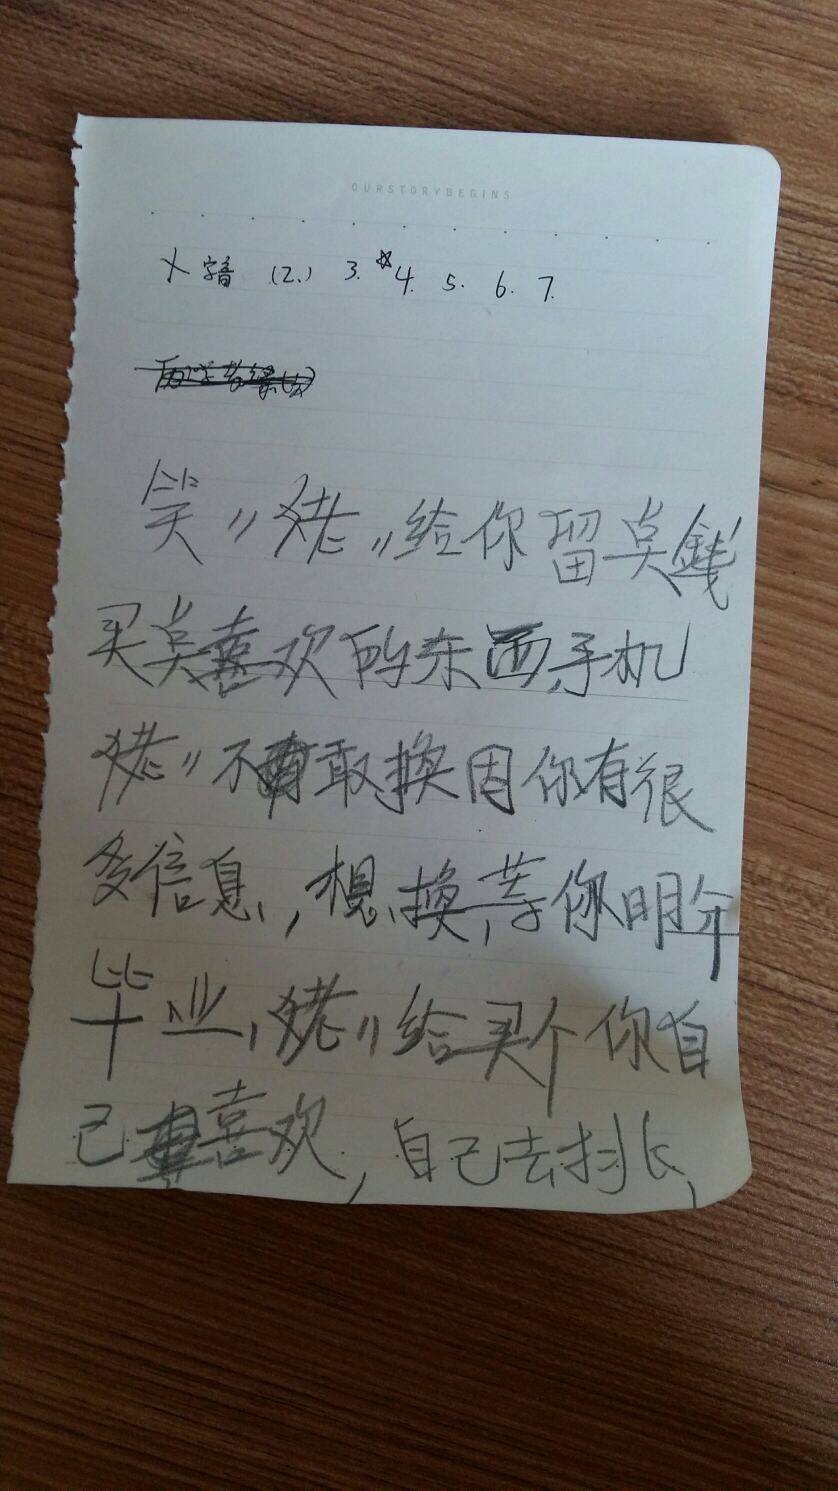 OURSTORYBEGINS
(2.) 3. ☆4. 5. 6. 7.
笑〃姥〃给你留点錢
买点喜欢的东西,手机
姥〃不敢换因你有很
多信息,想换,等你明年
毕业,姥〃给买个你自
己喜欢,自己去挑,